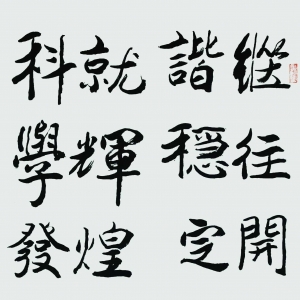 繼往開
諧穩定
就輝煌
科學發